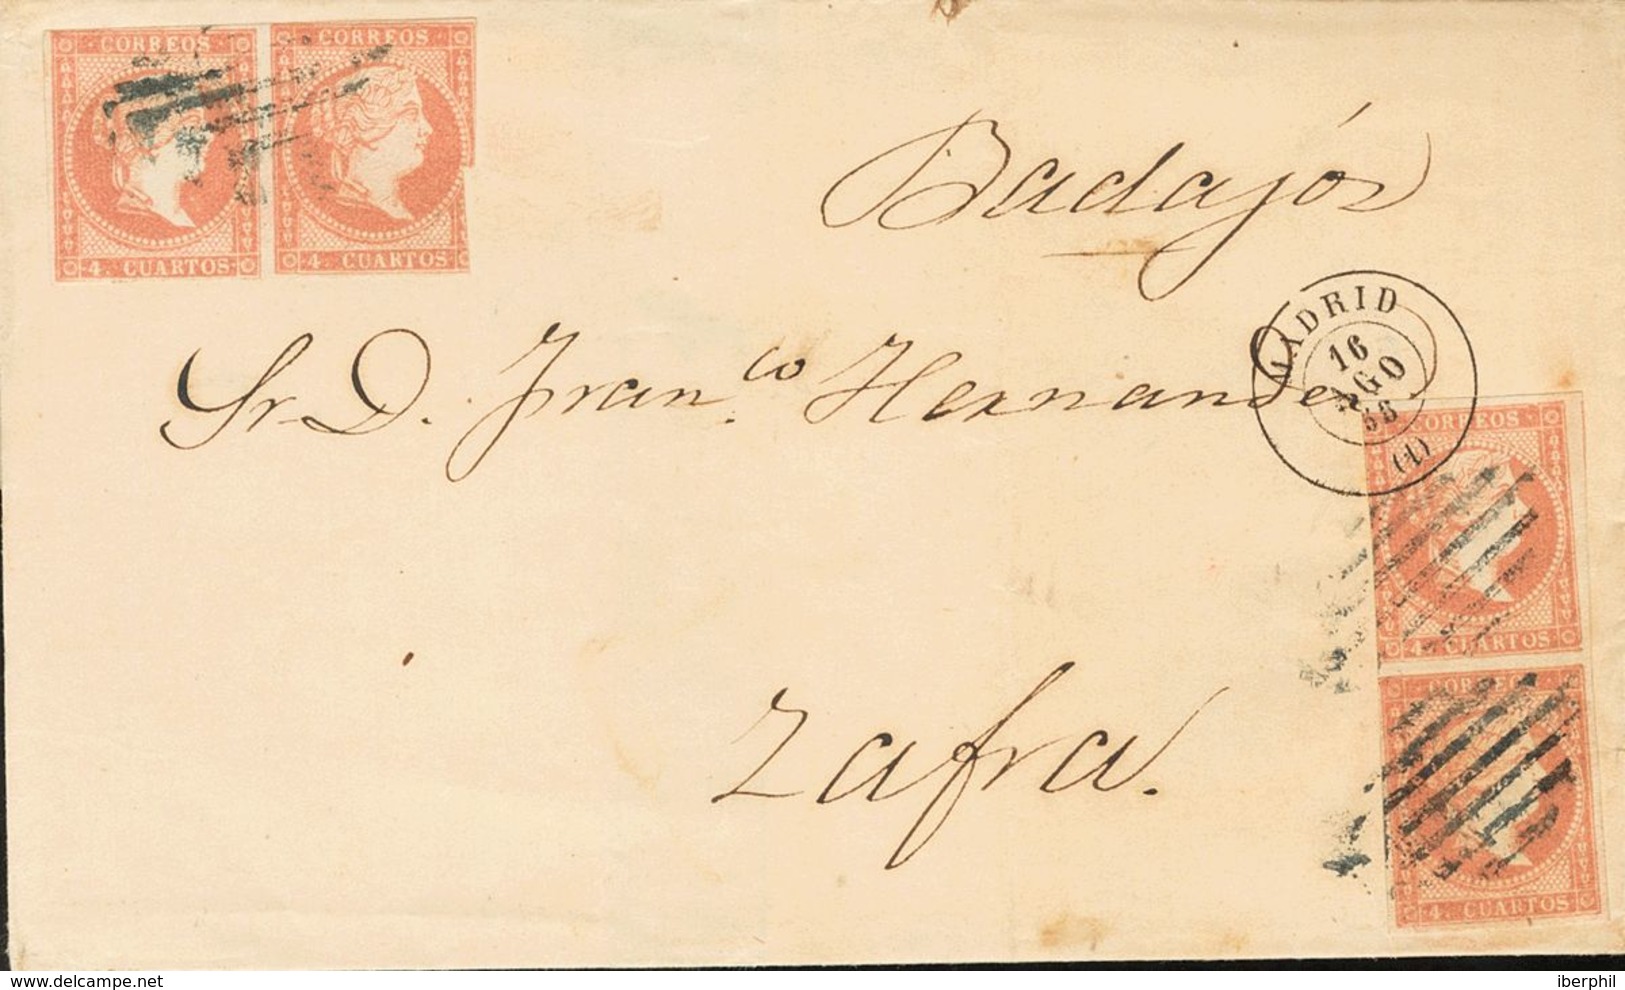 CORREOS
CORREOS
4 CUARTOS
4 CUARTOS
Badajós
MADRID
16
AGO
(1)
Sr. D. Fran.co Hernandez
CORREOS
4 CUARTOS
CORREOS
4 CUARTOS
Zafra.
iberphil